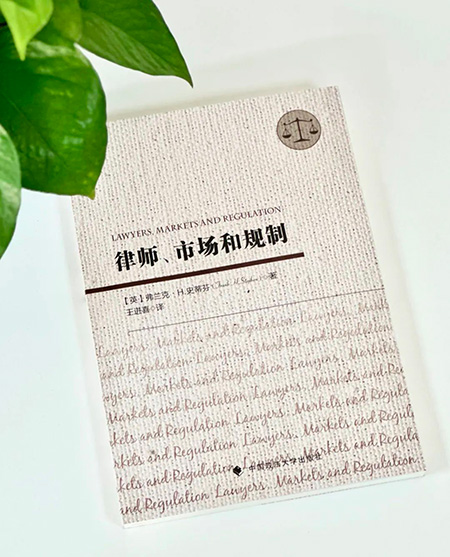 LAWYERS, MARKETS AND REGULATION
律师、市场和规制
【英】弗兰克·H.史蒂芬（Frank H. Stephen）著
王进喜◇译
Lawyers, Markets and Regulation Lawyers, Markets and
Regulation Lawyers, Markets and Regulation
Lawyers, Markets and Regulation Lawyers,
Markets and Regulation Lawyers, Markets and
Regulation Lawyers, Markets and Regulation
中国政法大学出版社